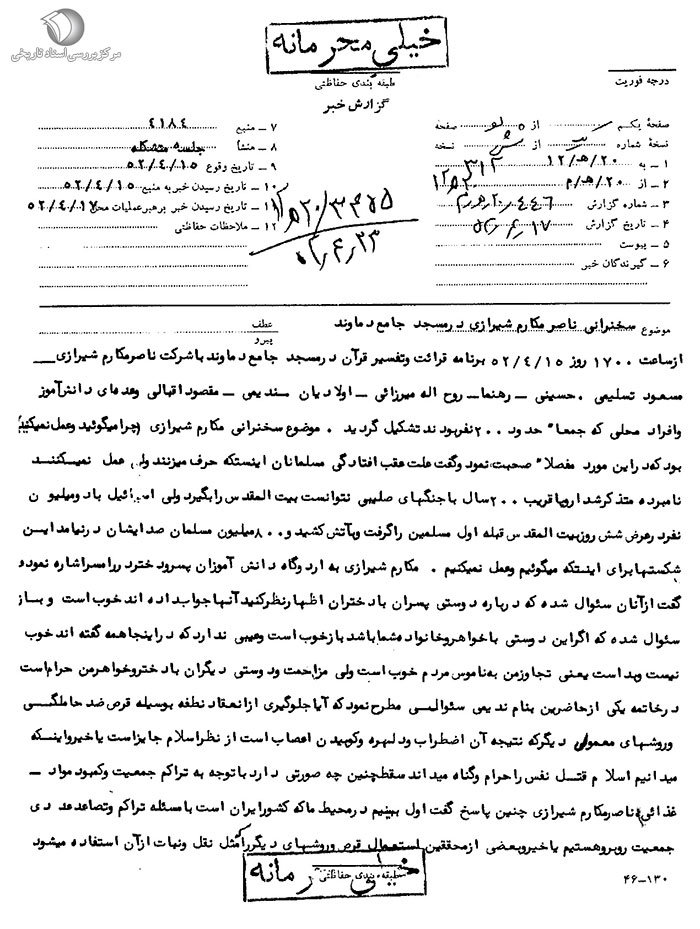 مرکز بررسی اسناد تاریخی
خیلی محرمانه
طبقه بندی حفاظتی
گزارش خبر
درجه فوریت
صفحه یکم از صفحه
نسخه شماره از نسخه
۱ – به ۳۱۲
۲ – از ۲۰/ه‍/م
۳ – شماره گزارش
۴ – تاریخ گزارش ۱۷
۵ – پیوست
۶ – گیرندگان خبر
۷ – منبع ۴۱۸۴
۸ – منشأ جلسه متشکله
۹ – تاریخ وقوع ۵۲/۴/۱۵
۱۰ – تاریخ رسیدن خبر به منبع ۵۲/۴/۱۵
۱۱ – تاریخ رسیدن خبر برهبر عملیات محل ۵۲/۴/۱۷
۱۲ – ملاحظات حفاظتی
موضوع سخنرانی ناصر مکارم شیرازی در مسجد جامع دماوند
عطف
پیرو
ازساعت ۱۷۰۰ روز ۵۲/۴/۱۵ برنامه قرائت وتفسیر قرآن درمسجد جامع دماوند باشرکت ناصرمکارم شیرازی ــ
مسعود تسلیمی . حسینی ــ رهنما ــ روح اله میرزائی ــ اولادیان سندیعی ــ مقصود اقبالی وعده‌ای دانش‌آموز
وافراد محلی که جمعا" حدود ۲۰۰ نفربودند تشکیل گردید . موضوع سخنرانی مکارم شیرازی (چرامیگوئید وعمل نمیکنید)
بودکه در این مورد مفصلا" صحبت نمود وگفت علت عقب افتادگی مسلمانان اینستکه حرف میزنند ولی عمل نمیکنند
نامبرده متذکرشد اروپا قریب ۲۰۰ سال باجنگهای صلیبی نتوانست بیت المقدس رابگیرد ولی اسرائیل بادومیلیون
نفردرعرض شش روزبیت المقدس قبله اول مسلمین راگرفت وبآتش کشید و۸۰۰ میلیون مسلمان صدایشان درنیامد این
شکستها برای اینستکه میگوئیم وعمل نمیکنیم . مکارم شیرازی به اردوگاه دانش آموزان پسرودختر در رامسراشاره نموده
گفت ازآنان سئوال شده که درباره دوستی پسران بادختران اظهارنظرکنید آنها جواب داده اند خوب است وباز
سئوال شده که اگراین دوستی باخواهروخانواده شما باشد بازخوب است وعیبی ندارد که در اینجا همه گفته اند خوب
نیست وبد است یعنی تجاوزمن به ناموس مردم خوب است ولی مزاحمت ودوستی دیگران بادختروخواهرمن حرام است
درخاتمه یکی ازحاضرین بنام ندیعی سئوالی مطرح نمود که آیا جلوگیری ازانعقاد نطفه بوسیله قرص ضد حاملگی
وروشهای معمولی دیگرکه نتیجه آن اضطراب ودلهره وکوبیدن اعصاب است از نظراسلام جایزاست یاخیرواینکه
میدانیم اسلام قتل نفس راحرام وگناه میداند سقط‌جنین چه صورتی دارد باتوجه به تراکم جمعیت وکمبود مواد ــ
غذائی ناصرمکارم شیرازی چنین پاسخ گفت اول ببینیم درمحیط ماکه کشورایران است بامسئله تراکم وتصاعدعددی
جمعیت روبروهستیم یاخیروبعضی ازمحققین استعمال قرص وروشهای دیگرراکه مثل نقل ونبات ازآن استفاده میشود
خیلی محرمانه
طبقه بندی حفاظتی
۴۶–۱۳۰